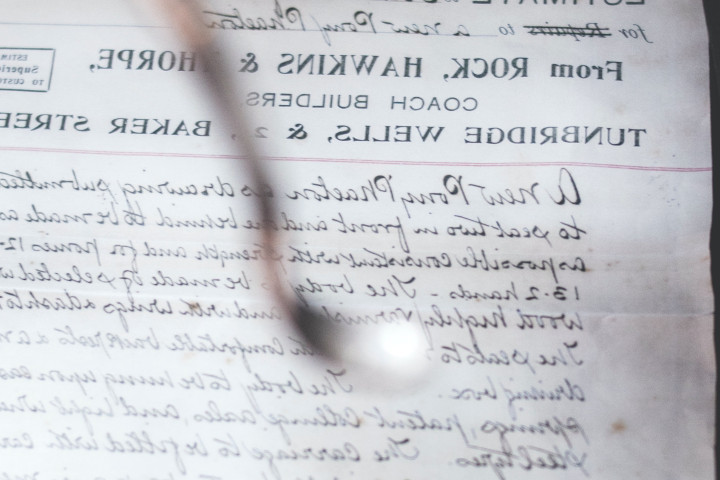 ESTIMATE
for Repairs to a new Pony Phaeton
From ROCK, HAWKINS & THORPE,
COACH BUILDERS,
TUNBRIDGE WELLS, & 2, BAKER STREE
ESTIM
Superio
TO CUSTO
A new Pony Phaeton as drawing submitted
to seat two in front and one behind to be made as
as possible consistent with strength and for ponies 12-
13-2 hands - The body to be made of selected
wood highly varnished and with wings & dash
The seats to comfortable
driving box. The body to be hung upon
springs, patent Collinge axles, and light
steel tyres The Carriage to be fitted with